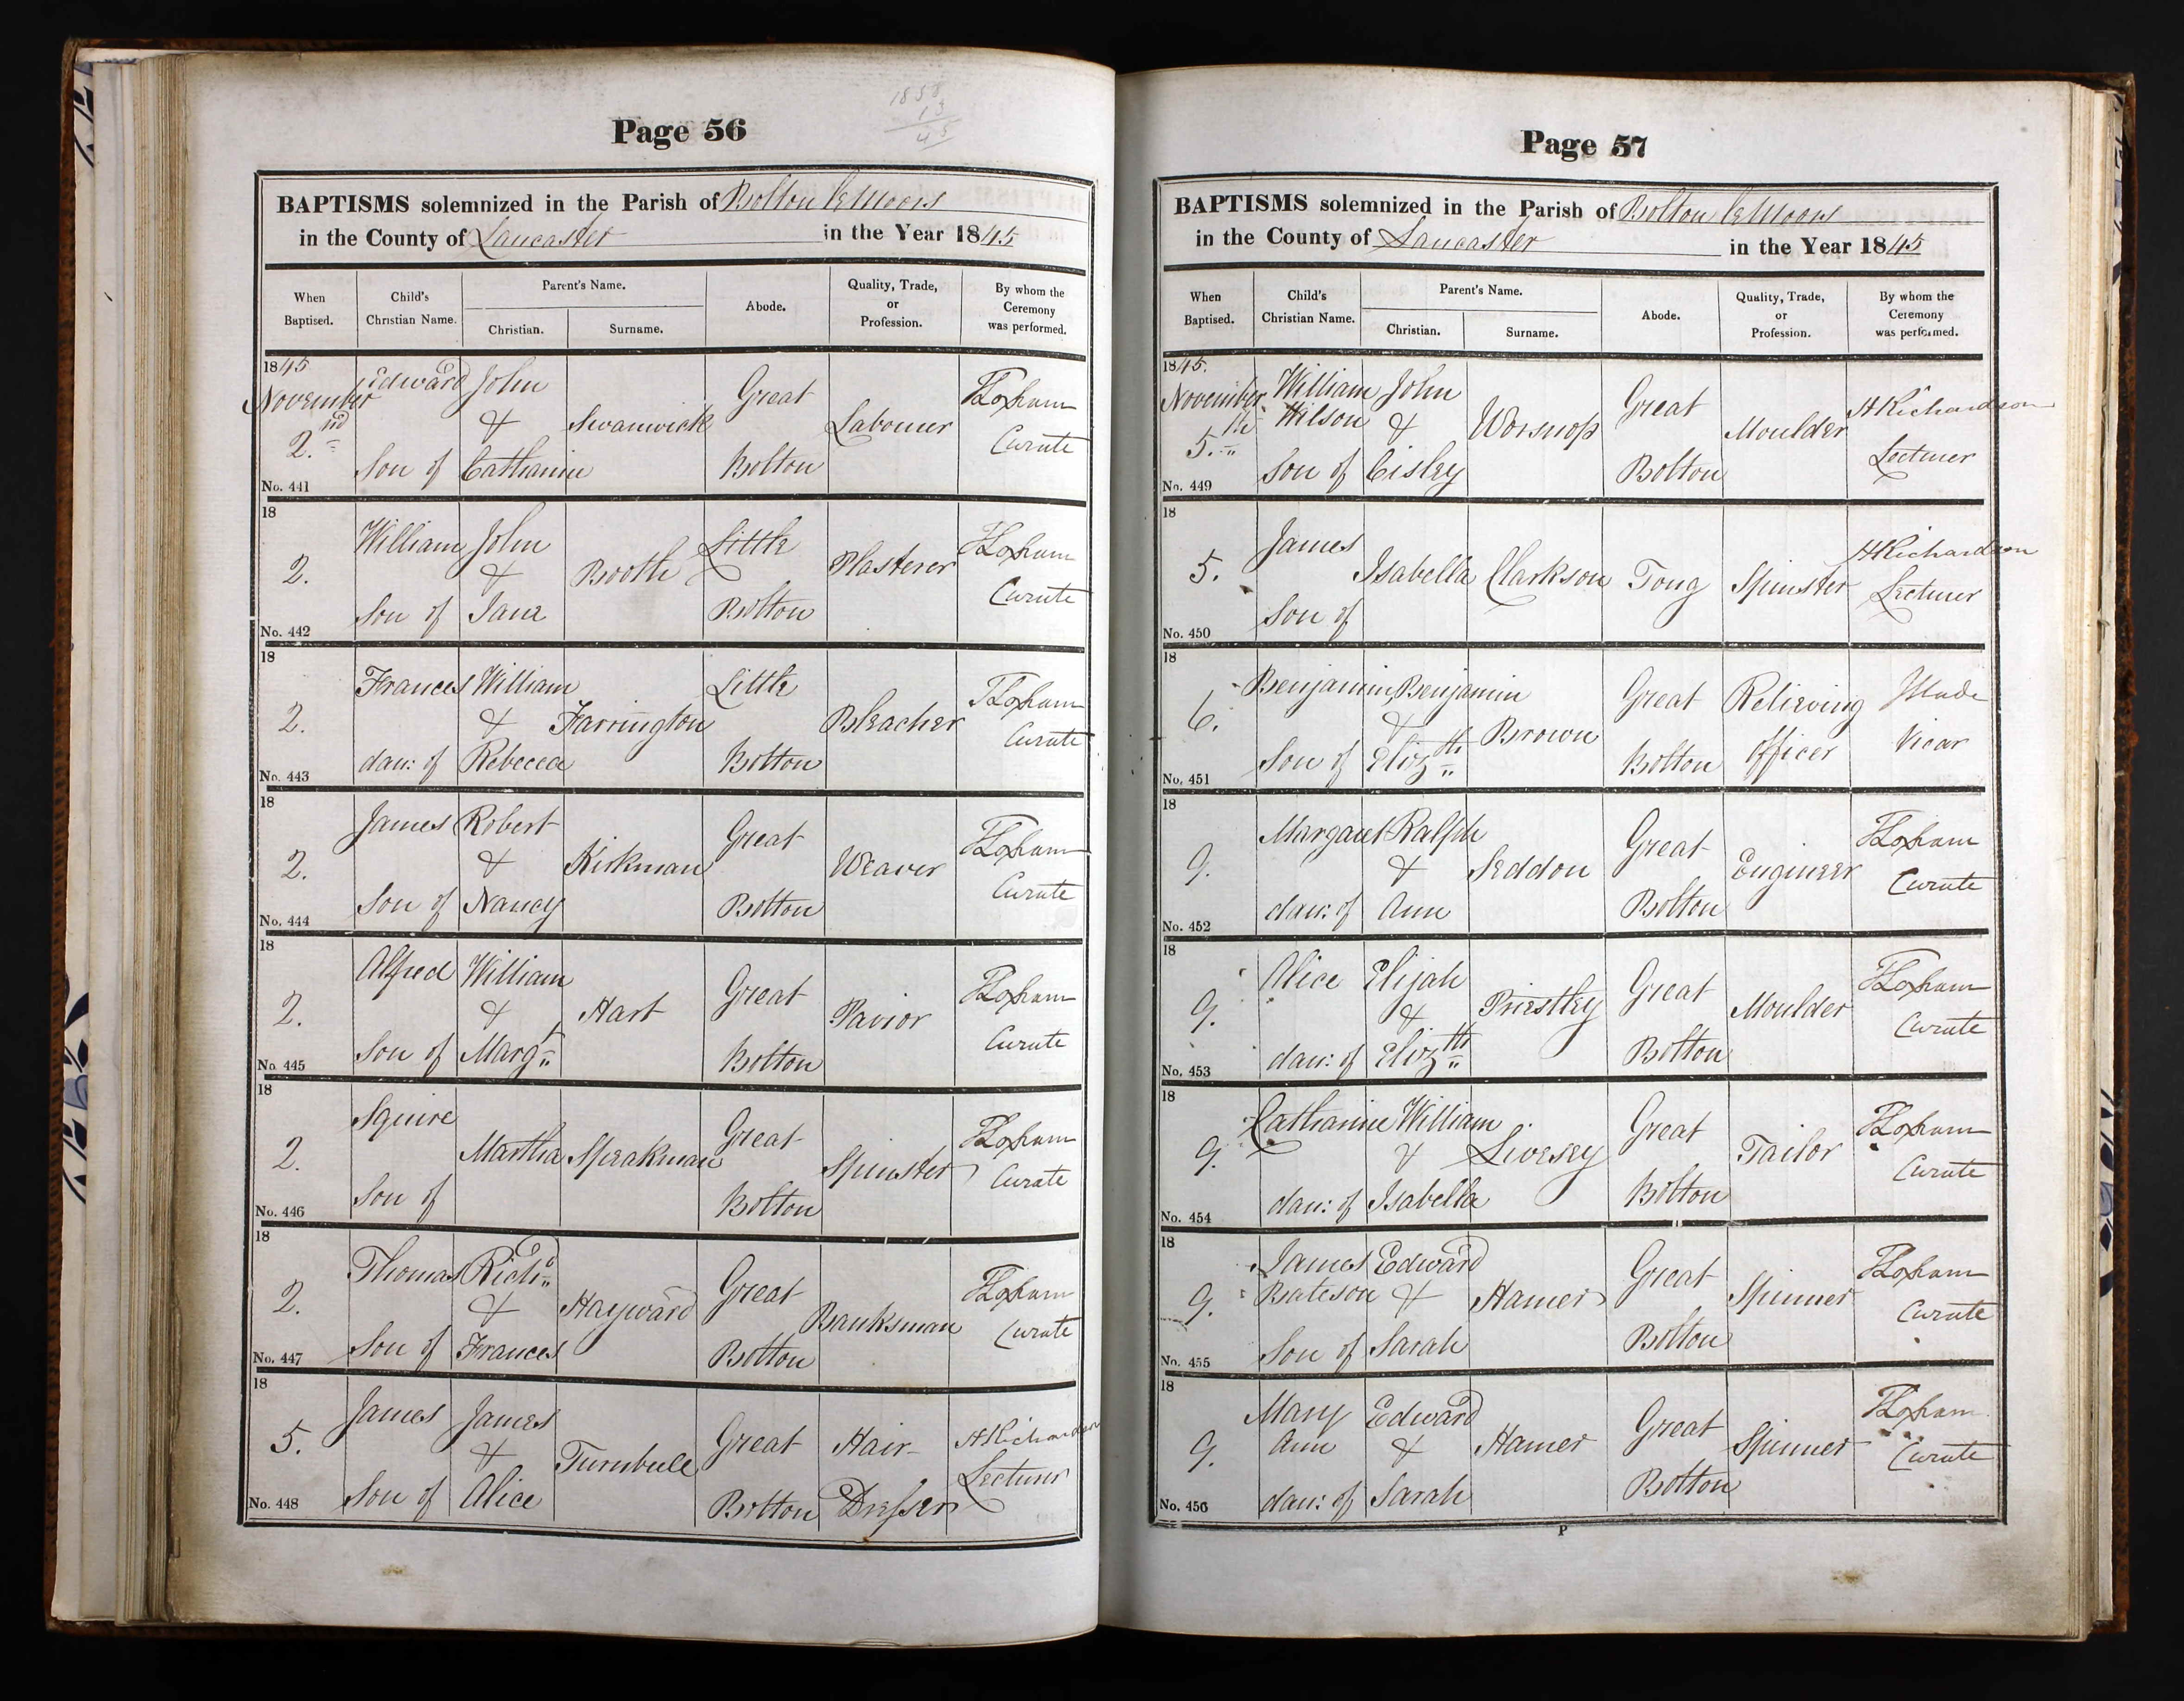 1858
13
45
Page 56
BAPTISMS solemnized in the Parish of Bolton le Moors
in the County of Lancaster in the Year 1845
When Baptised. Child's Christian Name. Parent's Name. Christian. Surname. Abode. Quality, Trade, or Profession. By whom the Ceremony was performed.
1845
November 2nd Edward Son of John & Catharine Swanwick Great Bolton Labourer TLoxham Curate
No. 441
18
2. William Son of John & Jane Booth Little Bolton Plasterer TLoxham Curate
No. 442
18
2. Frances dau: of William & Rebecca Farrington Little Bolton Bleacher TLoxham Curate
No. 443
18
2. James Son of Robert & Nancy Kirkman Great Bolton Weaver TLoxham Curate
No. 444
18
2. Alfred Son of William & Margt Hart Great Bolton Pavior TLoxham Curate
No. 445
18
2. Squire Son of Martha Speakman Great Bolton Spinster TLoxham Curate
No. 446
18
2. Thomas Son of Richd & Frances Hayward Great Bolton Banksman TLoxham Curate
No. 447
18
5. James Son of James & Alice Turnbull Great Bolton Hair Dresser HRichardson Lecturer
No. 448
Page 57
BAPTISMS solemnized in the Parish of Bolton le Moors
in the County of Lancaster in the Year 1845
When Baptised. Child's Christian Name. Parent's Name. Christian. Surname. Abode. Quality, Trade, or Profession. By whom the Ceremony was performed.
1845.
November 5.th William Wilson Son of John & Cisley Worsnop Great Bolton Moulder HRichardson Lecturer
No. 449
18
5. James Son of Isabella Clarkson Tong Spinster HRichardson Lecturer
No. 450
18
6. Benjamin Son of Benjamin & Elizth Brown Great Bolton Relieving Officer JSlade Vicar
No. 451
18
9. Margaret dau: of Ralph & Ann Seddon Great Bolton Engineer TLoxham Curate
No. 452
18
9. Alice dau: of Elijah & Elizth Priestley Great Bolton Moulder TLoxham Curate
No. 453
18
9. Catharine dau: of William & Isabella Livesey Great Bolton Tailor TLoxham Curate
No. 454
18
9. James Bateson Son of Edward & Sarah Hamer Great Bolton Spinner TLoxham Curate
No. 455
18
9. Mary Ann dau: of Edward & Sarah Hamer Great Bolton Spinner TLoxham Curate
No. 456
P